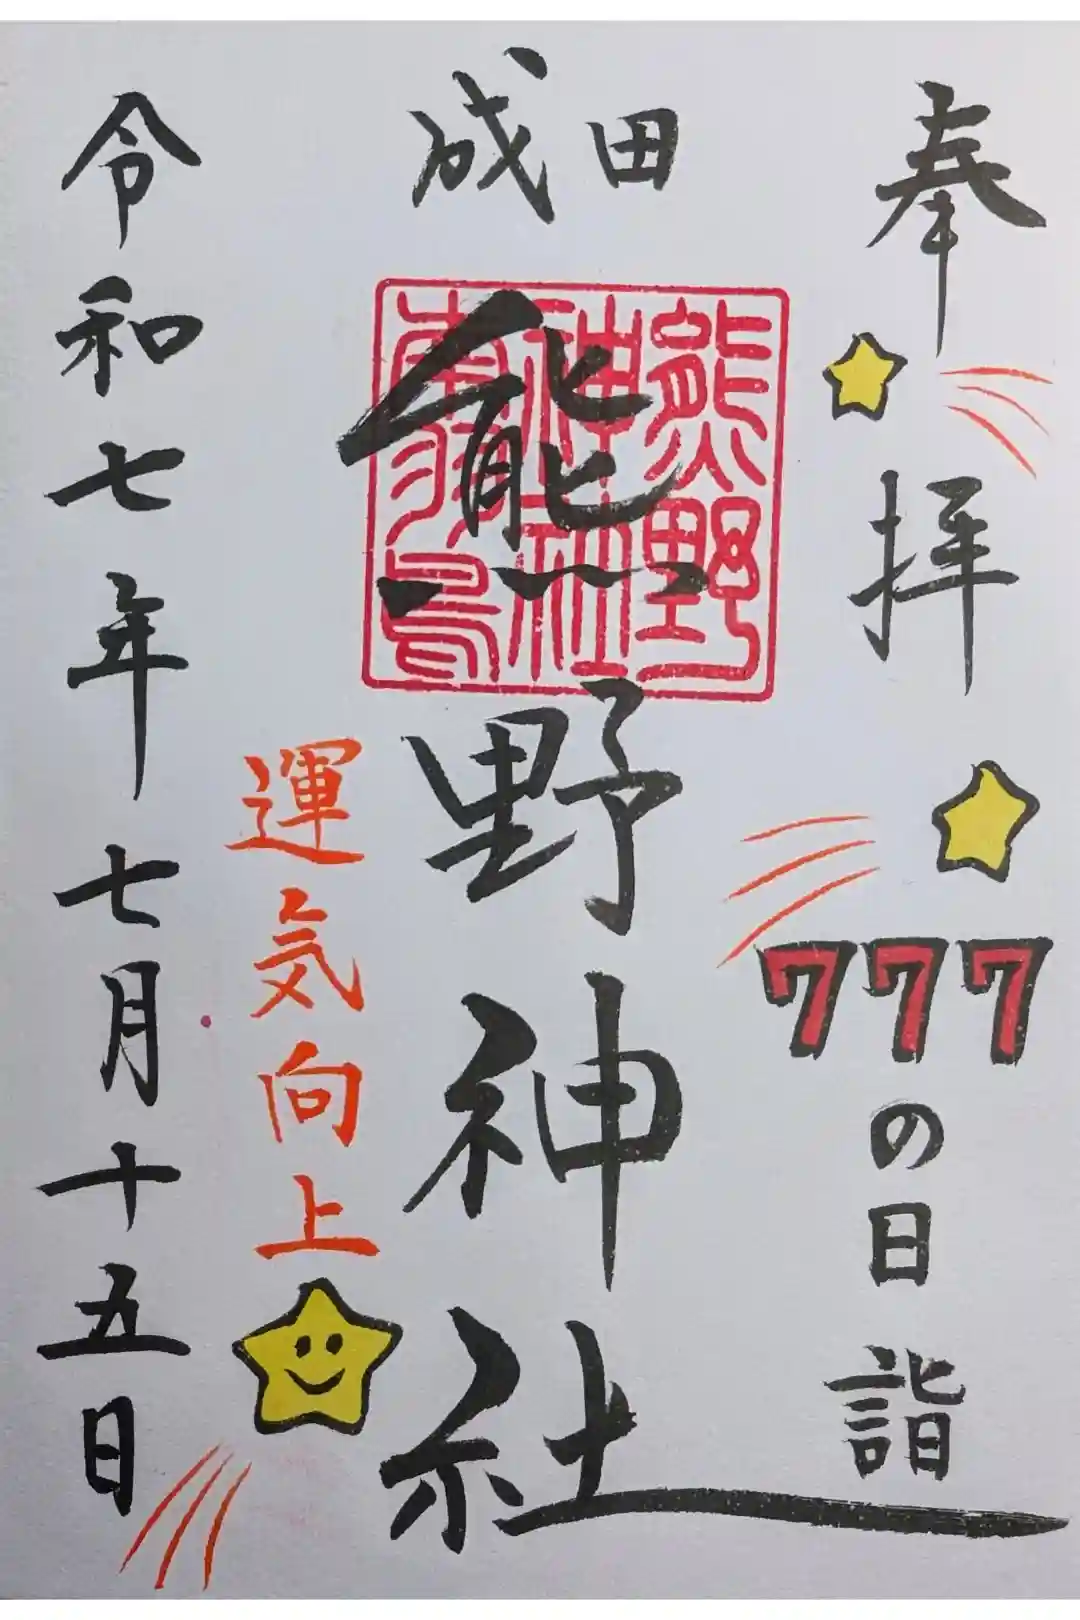 奉拝
777の日詣
成田
熊野神社
熊野
神社
運気向上
令和七年七月十五日